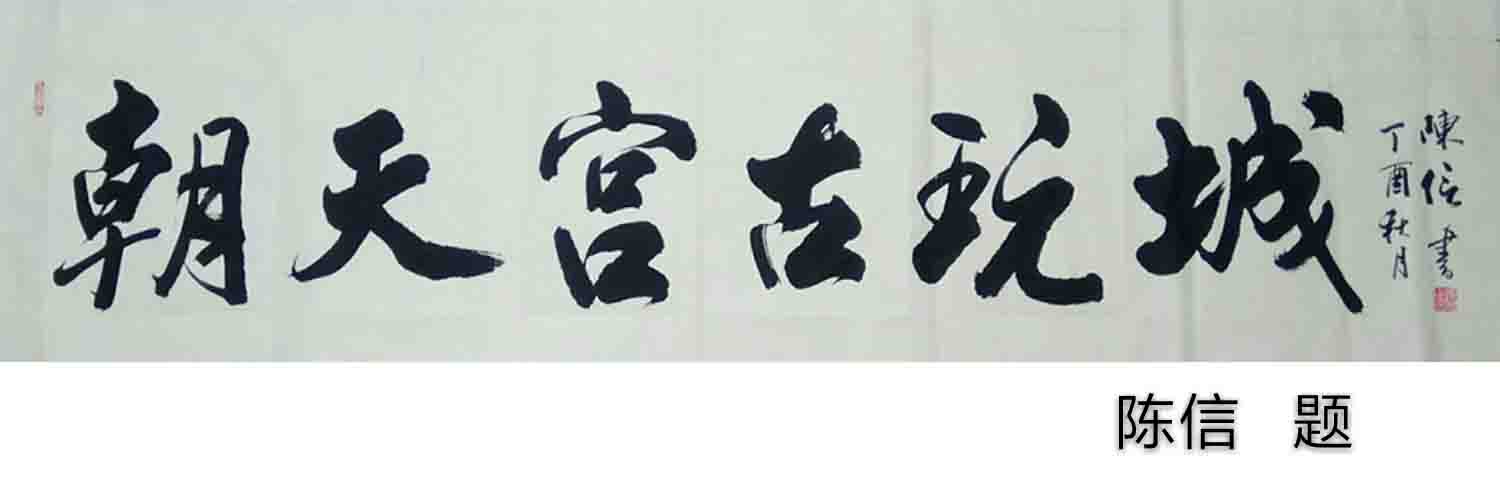 朝天宫古玩城
丁酉秋月
陳信書
陈信 题